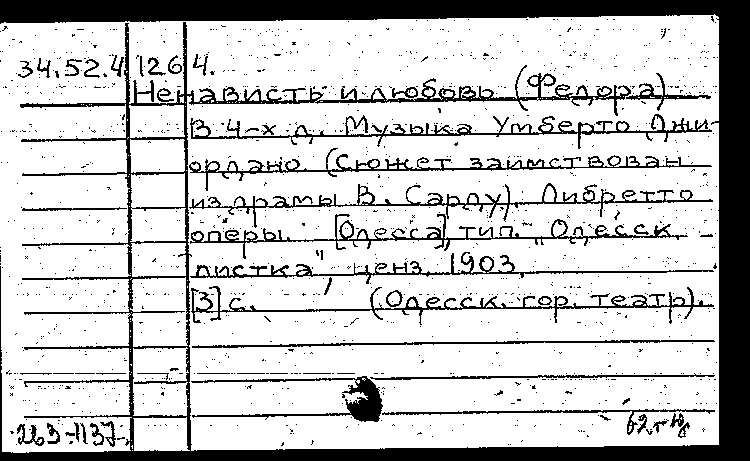 34.52.4.1264.
Ненависть и любовь (Федора)
В 4-х д. Музыка Умберто Джи-
ордано. (Сюжет заимствован
из драмы В. Сарду). Либретто
оперы. [Одесса], тип. "Одесск.
листка", ценз. 1903.
[3] с. (Одесск. гор. театр).
263-1137